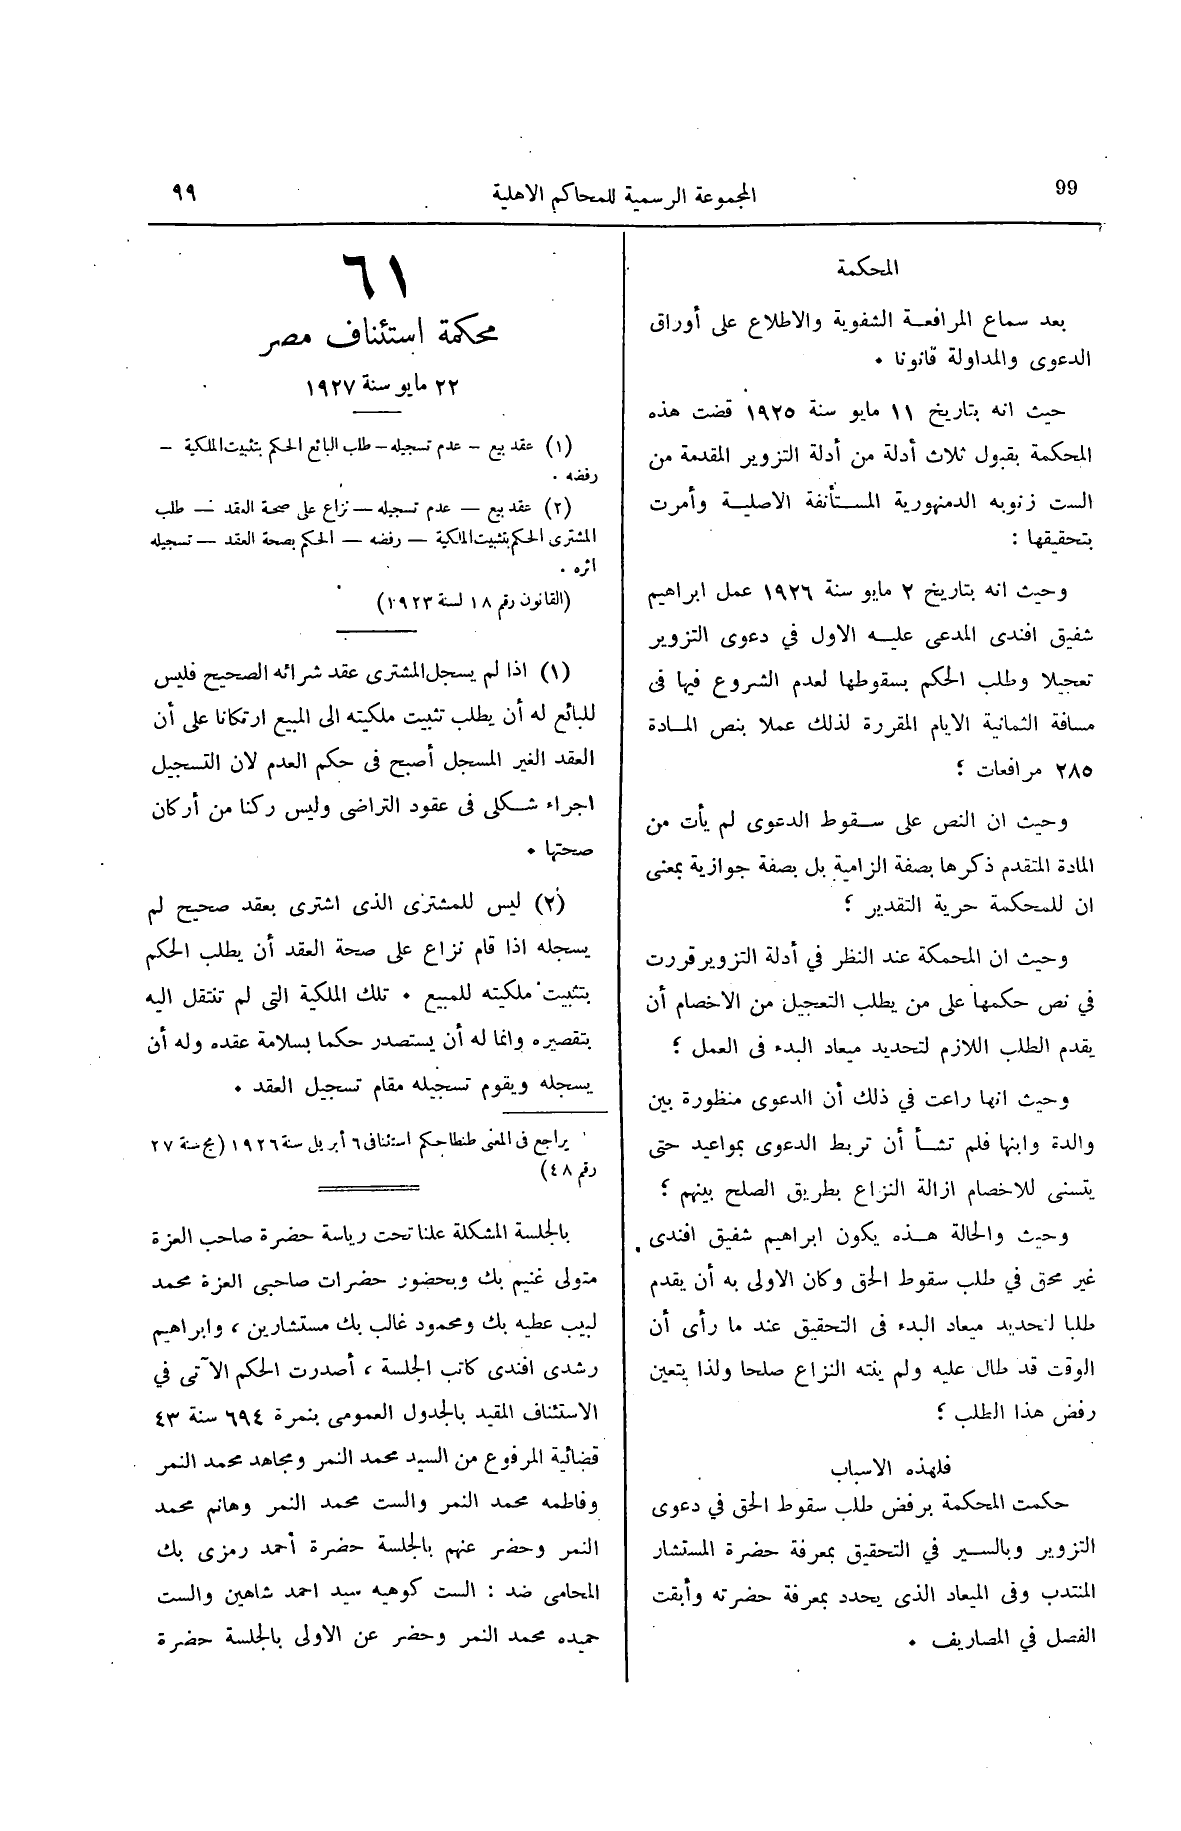 99
المجموعة الرسمية للمحاكم الاهلية
٩٩
المحكمة
بعد سماع المرافعة الشفوية والاطلاع على أوراق
الدعوى والمداولة قانونا .
حيث انه بتاريخ ١١ مايو سنة ١٩٢٥ قضت هذه
المحكمة بقبول ثلاث أدلة من أدلة التزوير المقدمة من
الست زنوبه الدمنهورية المستأنفة الاصلية وأمرت
بتحقيقها :
وحيث انه بتاريخ ٢ مايو سنة ١٩٢٦ عمل ابراهيم
شفيق افندى المدعى عليه الاول في دعوى التزوير
تعجيلا وطلب الحكم بسقوطها لعدم الشروع فيها فى
مسافة الثمانية الايام المقررة لذلك عملا بنص المادة
٢٨٥ مرافعات ؛
وحيث ان النص على سقوط الدعوى لم يأت من
المادة المتقدم ذكرها بصفة الزامية بل بصفة جوازية بمعنى
ان للمحكمة حرية التقدير ؛
وحيث ان المحمكة عند النظر في أدلة التزوير قررت
في نص حكمها على من يطلب التعجيل من الاخصام أن
يقدم الطلب اللازم لتحديد ميعاد البدء فى العمل ؛
وحيث انها راعت في ذلك أن الدعوى منظورة بين
والدة وابنها فلم تشأ أن تربط الدعوى بمواعيد حتى
يتسنى للاخصام ازالة النزاع بطريق الصلح بينهم ؛
وحيث والحالة هذه يكون ابراهيم شفيق افندى
غير محق في طلب سقوط الحق وكان الاولى به أن يقدم
طلبا لتحديد ميعاد البدء فى التحقيق عند ما رأى أن
الوقت قد طال عليه ولم ينته النزاع صلحا ولذا يتعين
رفض هذا الطلب ؛
فلهذه الاسباب
حكمت المحكمة برفض طلب سقوط الحق في دعوى
التزوير وبالسير في التحقيق بمعرفة حضرة المستشار
المنتدب وفى الميعاد الذى يحدد بمعرفة حضرته وأبقت
الفصل في المصاريف .
٦١
محكمة استئناف مصر
٢٢ مايو سنة ١٩٢٧
(١) عقد بيع – عدم تسجيله – طلب البائع الحكم بتثبيت الملكية –
رفضه .
(٢) عقد بيع – عدم تسجيله – نزاع على صحة العقد – طلب
المشترى الحكم بتثبيت المالكية – رفضه – الحكم بصحة العقد – تسجيله
اثره .
(القانون رقم ١٨ لسنة ١٩٢٣)
(١) اذا لم يسجل المشترى عقد شرائه الصحيح فليس
للبائع له أن يطلب تثبيت ملكيته الى المبيع ارتكانا على أن
العقد الغير المسجل أصبح فى حكم العدم لان التسجيل
اجراء شكلى فى عقود التراضى وليس ركنا من أركان
صحتها .
(٢) ليس للمشترى الذى اشترى بعقد صحيح لم
يسجله اذا قام نزاع على صحة العقد أن يطلب الحكم
بتثبيت ملكيته للمبيع . تلك الملكية التى لم تنتقل اليه
بتقصيره وانما له أن يستصدر حكما بسلامة عقده وله أن
يسجله ويقوم تسجيله مقام تسجيل العقد .
يراجع فى المعنى طنطا حكم استئنافى ٦ أبريل سنة ١٩٢٦ (مج سنة ٢٧
رقم ٤٨)
بالجلسة المشكلة علنا تحت رياسة حضرة صاحب العزة
متولى غنيم بك وبحضور حضرات صاحبى العزة محمد
لبيب عطيه بك ومحمود غالب بك مستشارين ، وابراهيم
رشدى افندى كاتب الجلسة ، أصدرت الحكم الآتى في
الاستئناف المقيد بالجدول العمومى بنمرة ٦٩٤ سنة ٤٣
قضائية المرفوع من السيد محمد النمر ومجاهد محمد النمر
وفاطمه محمد النمر والست محمد النمر وهانم محمد
النمر وحضر عنهم بالجلسة حضرة أحمد رمزى بك
المحامى ضد : الست كوهيه سيد احمد شاهين والست
حميده محمد النمر وحضر عن الاولى بالجلسة حضرة